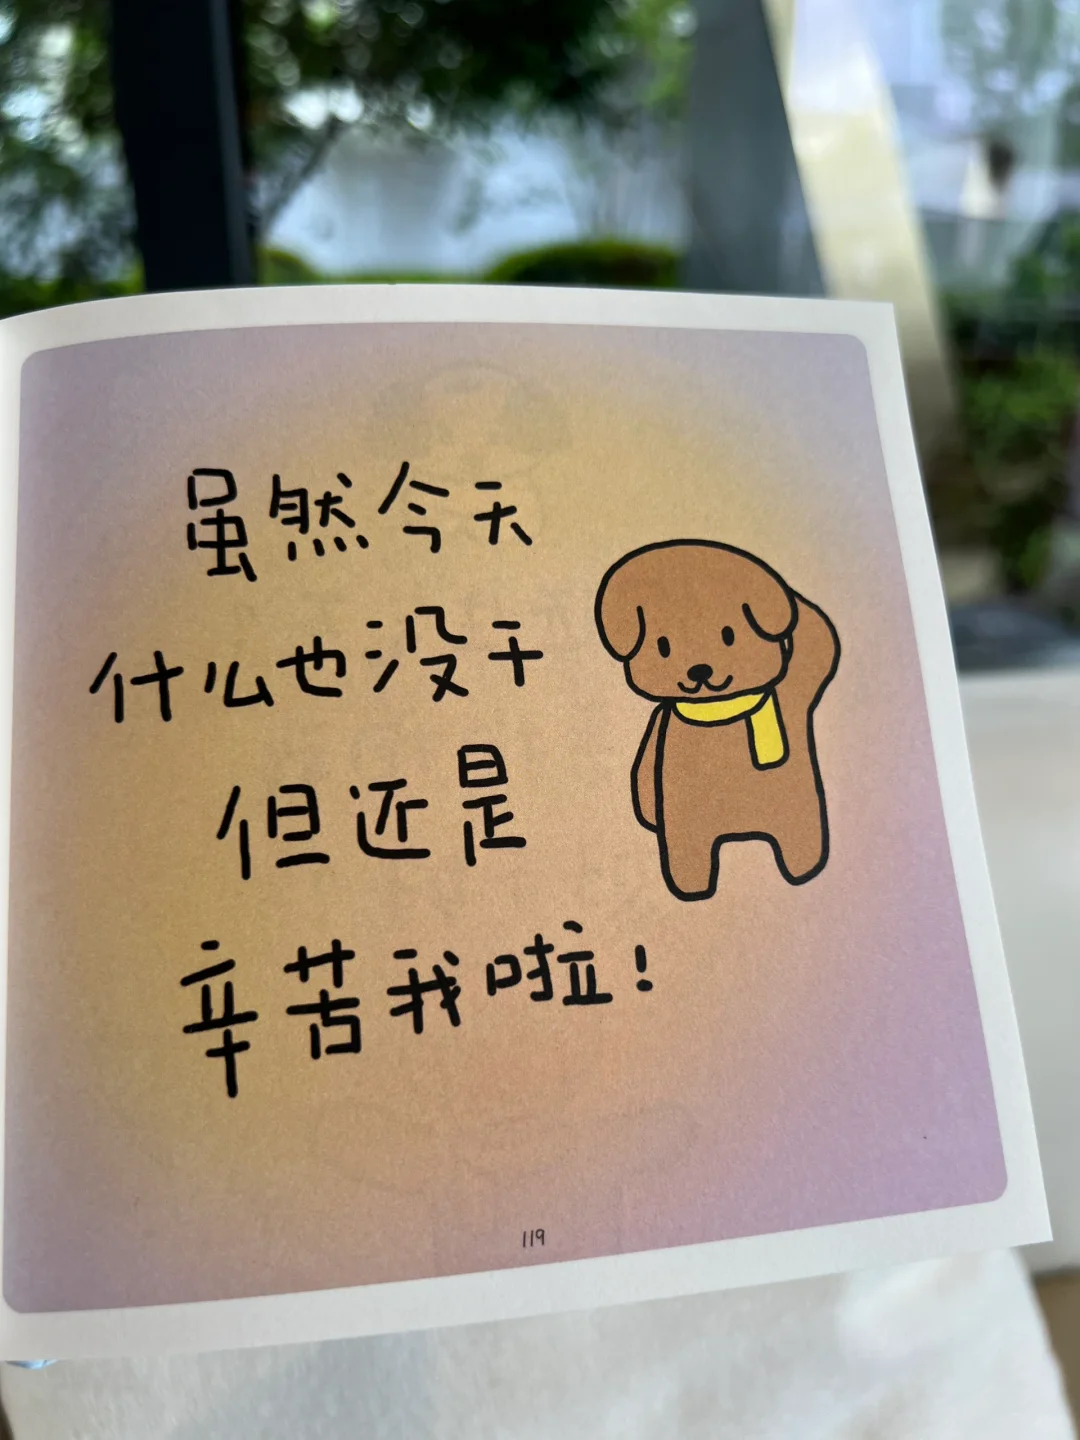 虽然今天
什么也没干
但还是
辛苦我啦!
119